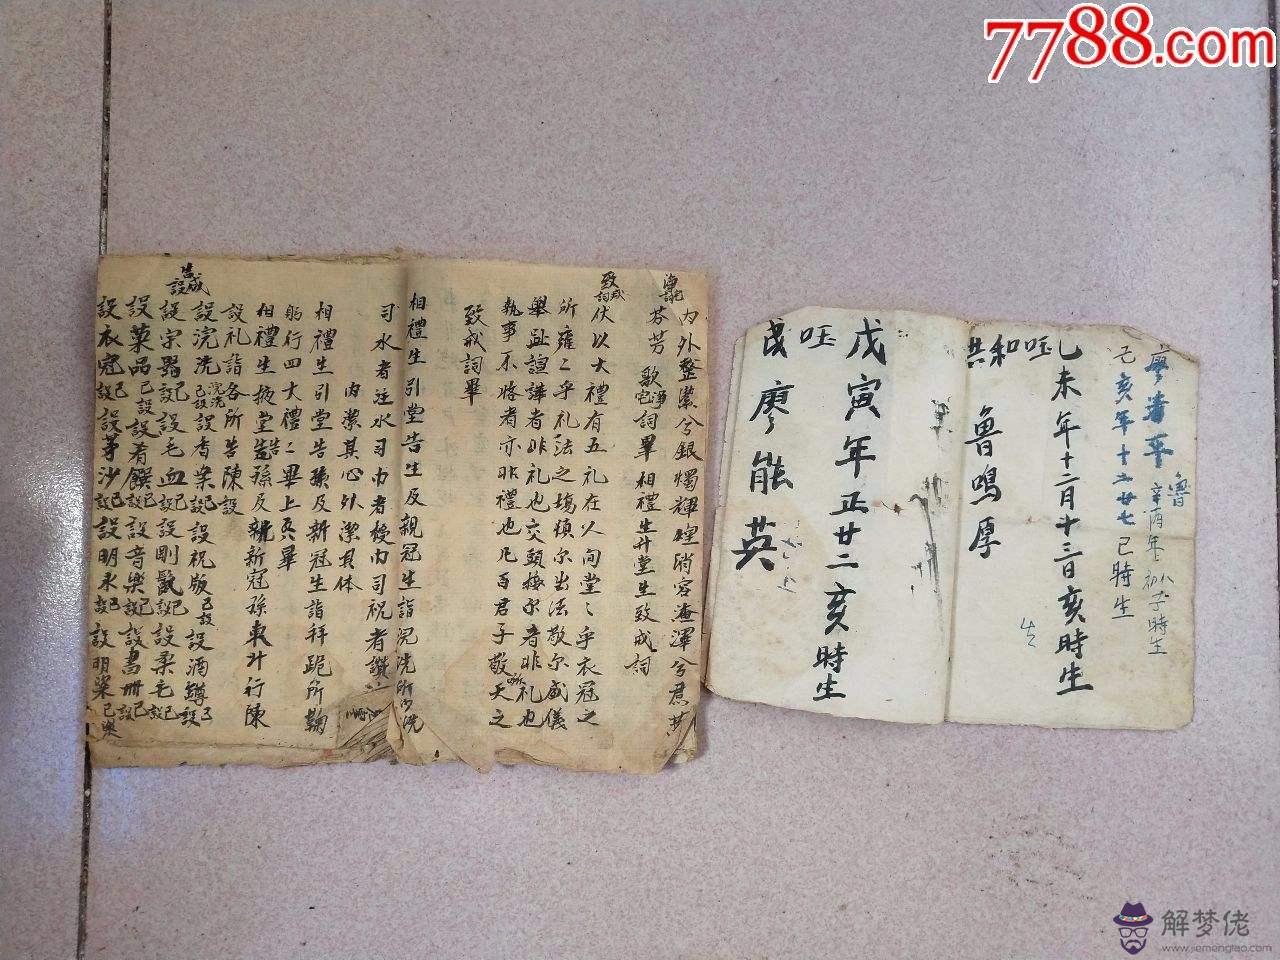 7788.com
淨
内外整肅兮銀燭輝煌
芬芳歌淨詞畢相禮生升堂生致戒詞
致戒詞
伏以大禮有五礼在人间堂〻乎衣冠之
所雍〻乎礼法之場慎尔出法敬尔威儀
舉趾諠譁者非礼也交頭接尔者非礼也
執事不恪者亦非禮也凡百君子敬天之
致戒詞畢
相禮生引堂告生及親冠生詣浣洗所浣洗
司水者注水司巾者授巾司祝者讚
内潔其心外潔其体
相禮生引堂告孫及新冠生詣拜跪所鞠
躬行四大禮〻畢上
相禮生掖堂告孫及新冠孫東升行陳
設礼詣各所告陳設
告成設
設浣洗已設設香案已設設祝版已設設酒罇已設
設宗器已設設毛血已設設剛鬣已設設柔毛已設
設菓品已設設肴饌已設設音樂已設設書册已設
設衣冠已設設茅沙已設設明水已設設明粢已
戊寅年正廿二亥時生
廖能英
辛酉年
子時生
己亥年十
廿七巳時生
乙未年十二月十三日亥時生
共和
魯鳴厚
解梦佬
www.jiemenglao.com